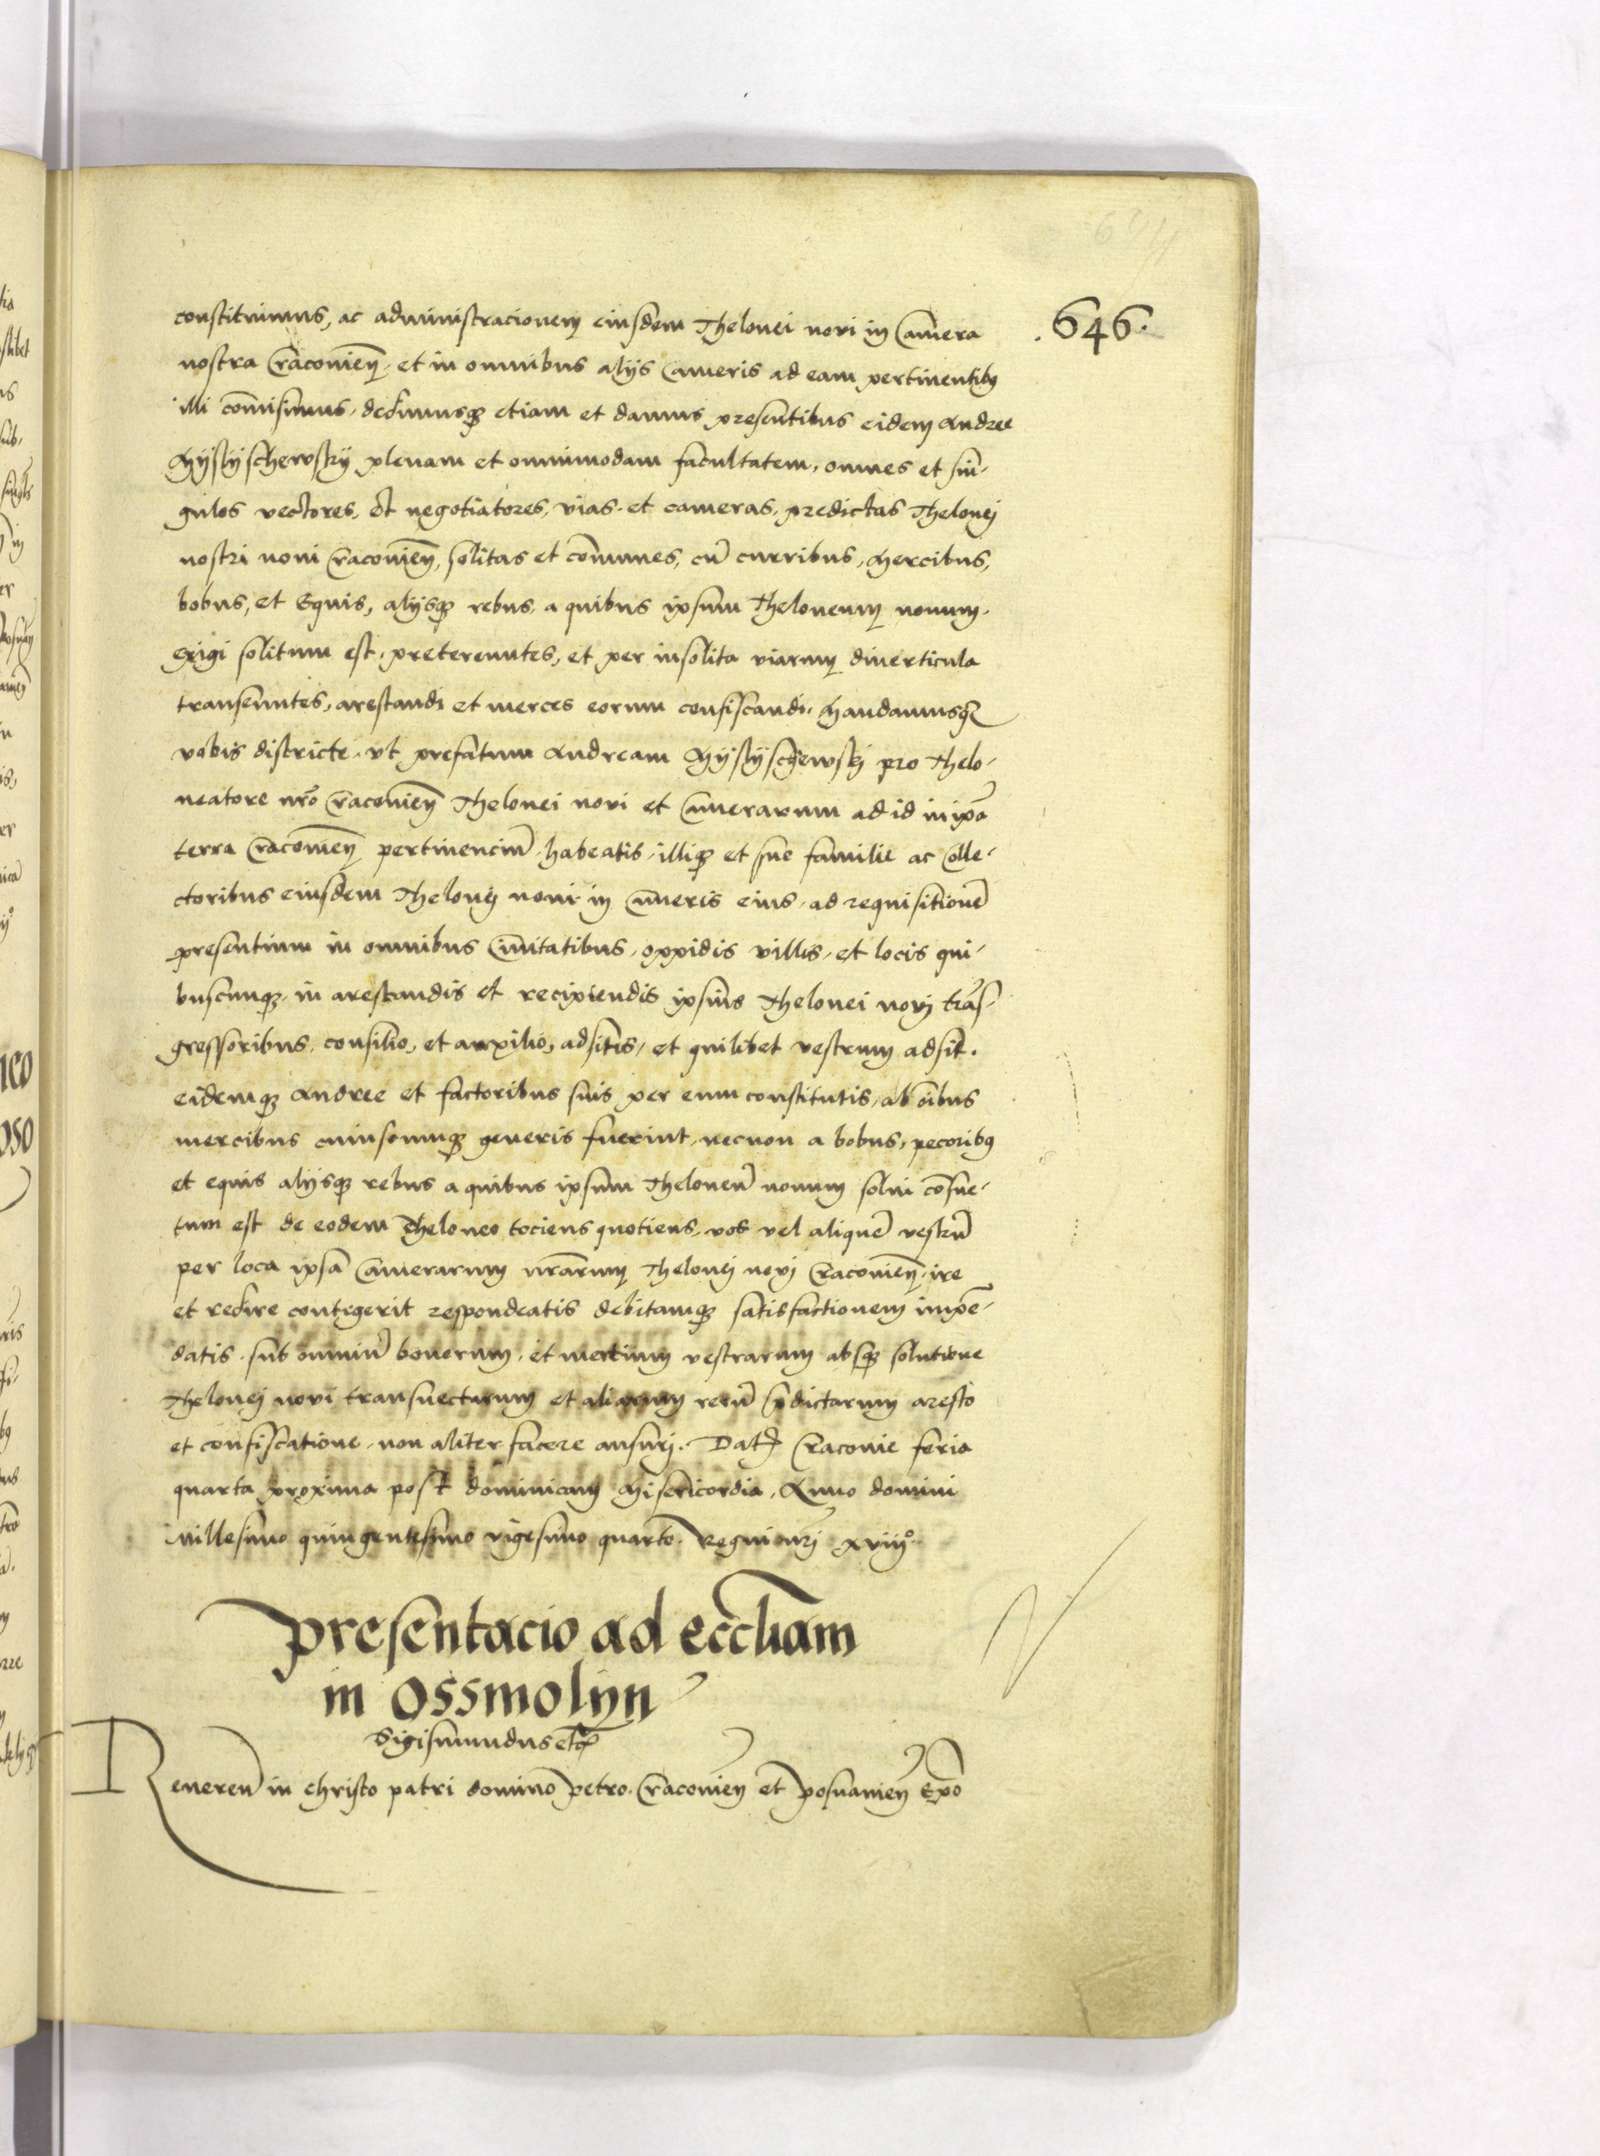 .646.
constituimus, ac administracionem eiusdem Thelonei novi in Camera
nostra Cracovien̄. et in omnibus alÿs Cameris ad eam pertinentibꝫ
illi com̄isimus. dedimusqꝫ etiam et damus presentibus eidem Andree
Mÿsÿschewskÿ plenam et omnimodam facultatem, omnes et sin-
gulos vectores, et negotiatores, vias. et cameras, predictas Thelonej
nostri noui Cracovien̄, solitas et com̄unes, cū curribus, Mercibus,
bobus, et Equis, alÿsqꝫ rebus, a quibus ipsum Theloneum nouum.
exigi solitum est, pretereuntes, et per insolita viarum diuerticula
transeuntes, arestandi et merces eorum confiscandi. Mandamusqꝫ
vobis districte. vt prefatum Andream Mÿsÿschewskj pro Thelo-
neatore nr̄o Cracovien̄ Thelonei novi et Camerarum ad id in ip̄a
terra Cracovien̄ pertinenciū. habeatis, illiqꝫ et sue familie ac Colle-
ctoribus eiusdem Thelonej noui in Cameris eius, ad requisitionē
presentium in omnibus Ciuitatibus, oppidis villis, et locis qui-
buscunqꝫ. in arestandis et recipiendis ipsius Thelonei novj trās-
gressoribus, consilio, et auxilio, adsitis, et quilibet vestrum adsit.
eidemqꝫ Andree et factoribus suis per eum constitutis, ab om̄ibus
mercibus cuiuscumqꝫ generis fuerint, necnon a bobus, pecoribꝫ
et equis alÿsqꝫ rebus a quibus ipsum Theloneū nouum solui cōsue-
tum est de eodem Theloneo tociens quotiens, vos vel aliquē vestrū
per loca ipsa Camerarum nr̄arum Thelonej novj Cracovien̄. ire
et redire contigerit respondeatis debitamqꝫ satisfactionem impē-
datis. sub omniū bonorum, et mertium vestrarum absqꝫ solutione
Thelonej novi transuectarum et aliarum rerū p̄dictarum aresto
et confiscatione, non aliter facere ausurj. Datꝫ Cracovie feria
quarta proxima post dominicam Misericordia, Anno domini
Millesimo quingentesimo vigesimo quarto. Regni nr̄j xviij°.
Presentacio ad eccl̄iam
in Ossmolÿn
Sigismundus etc̄
Reuerēn in christo patri domino Petro. Cracovien̄ et Posnanien̄ Ep̄o